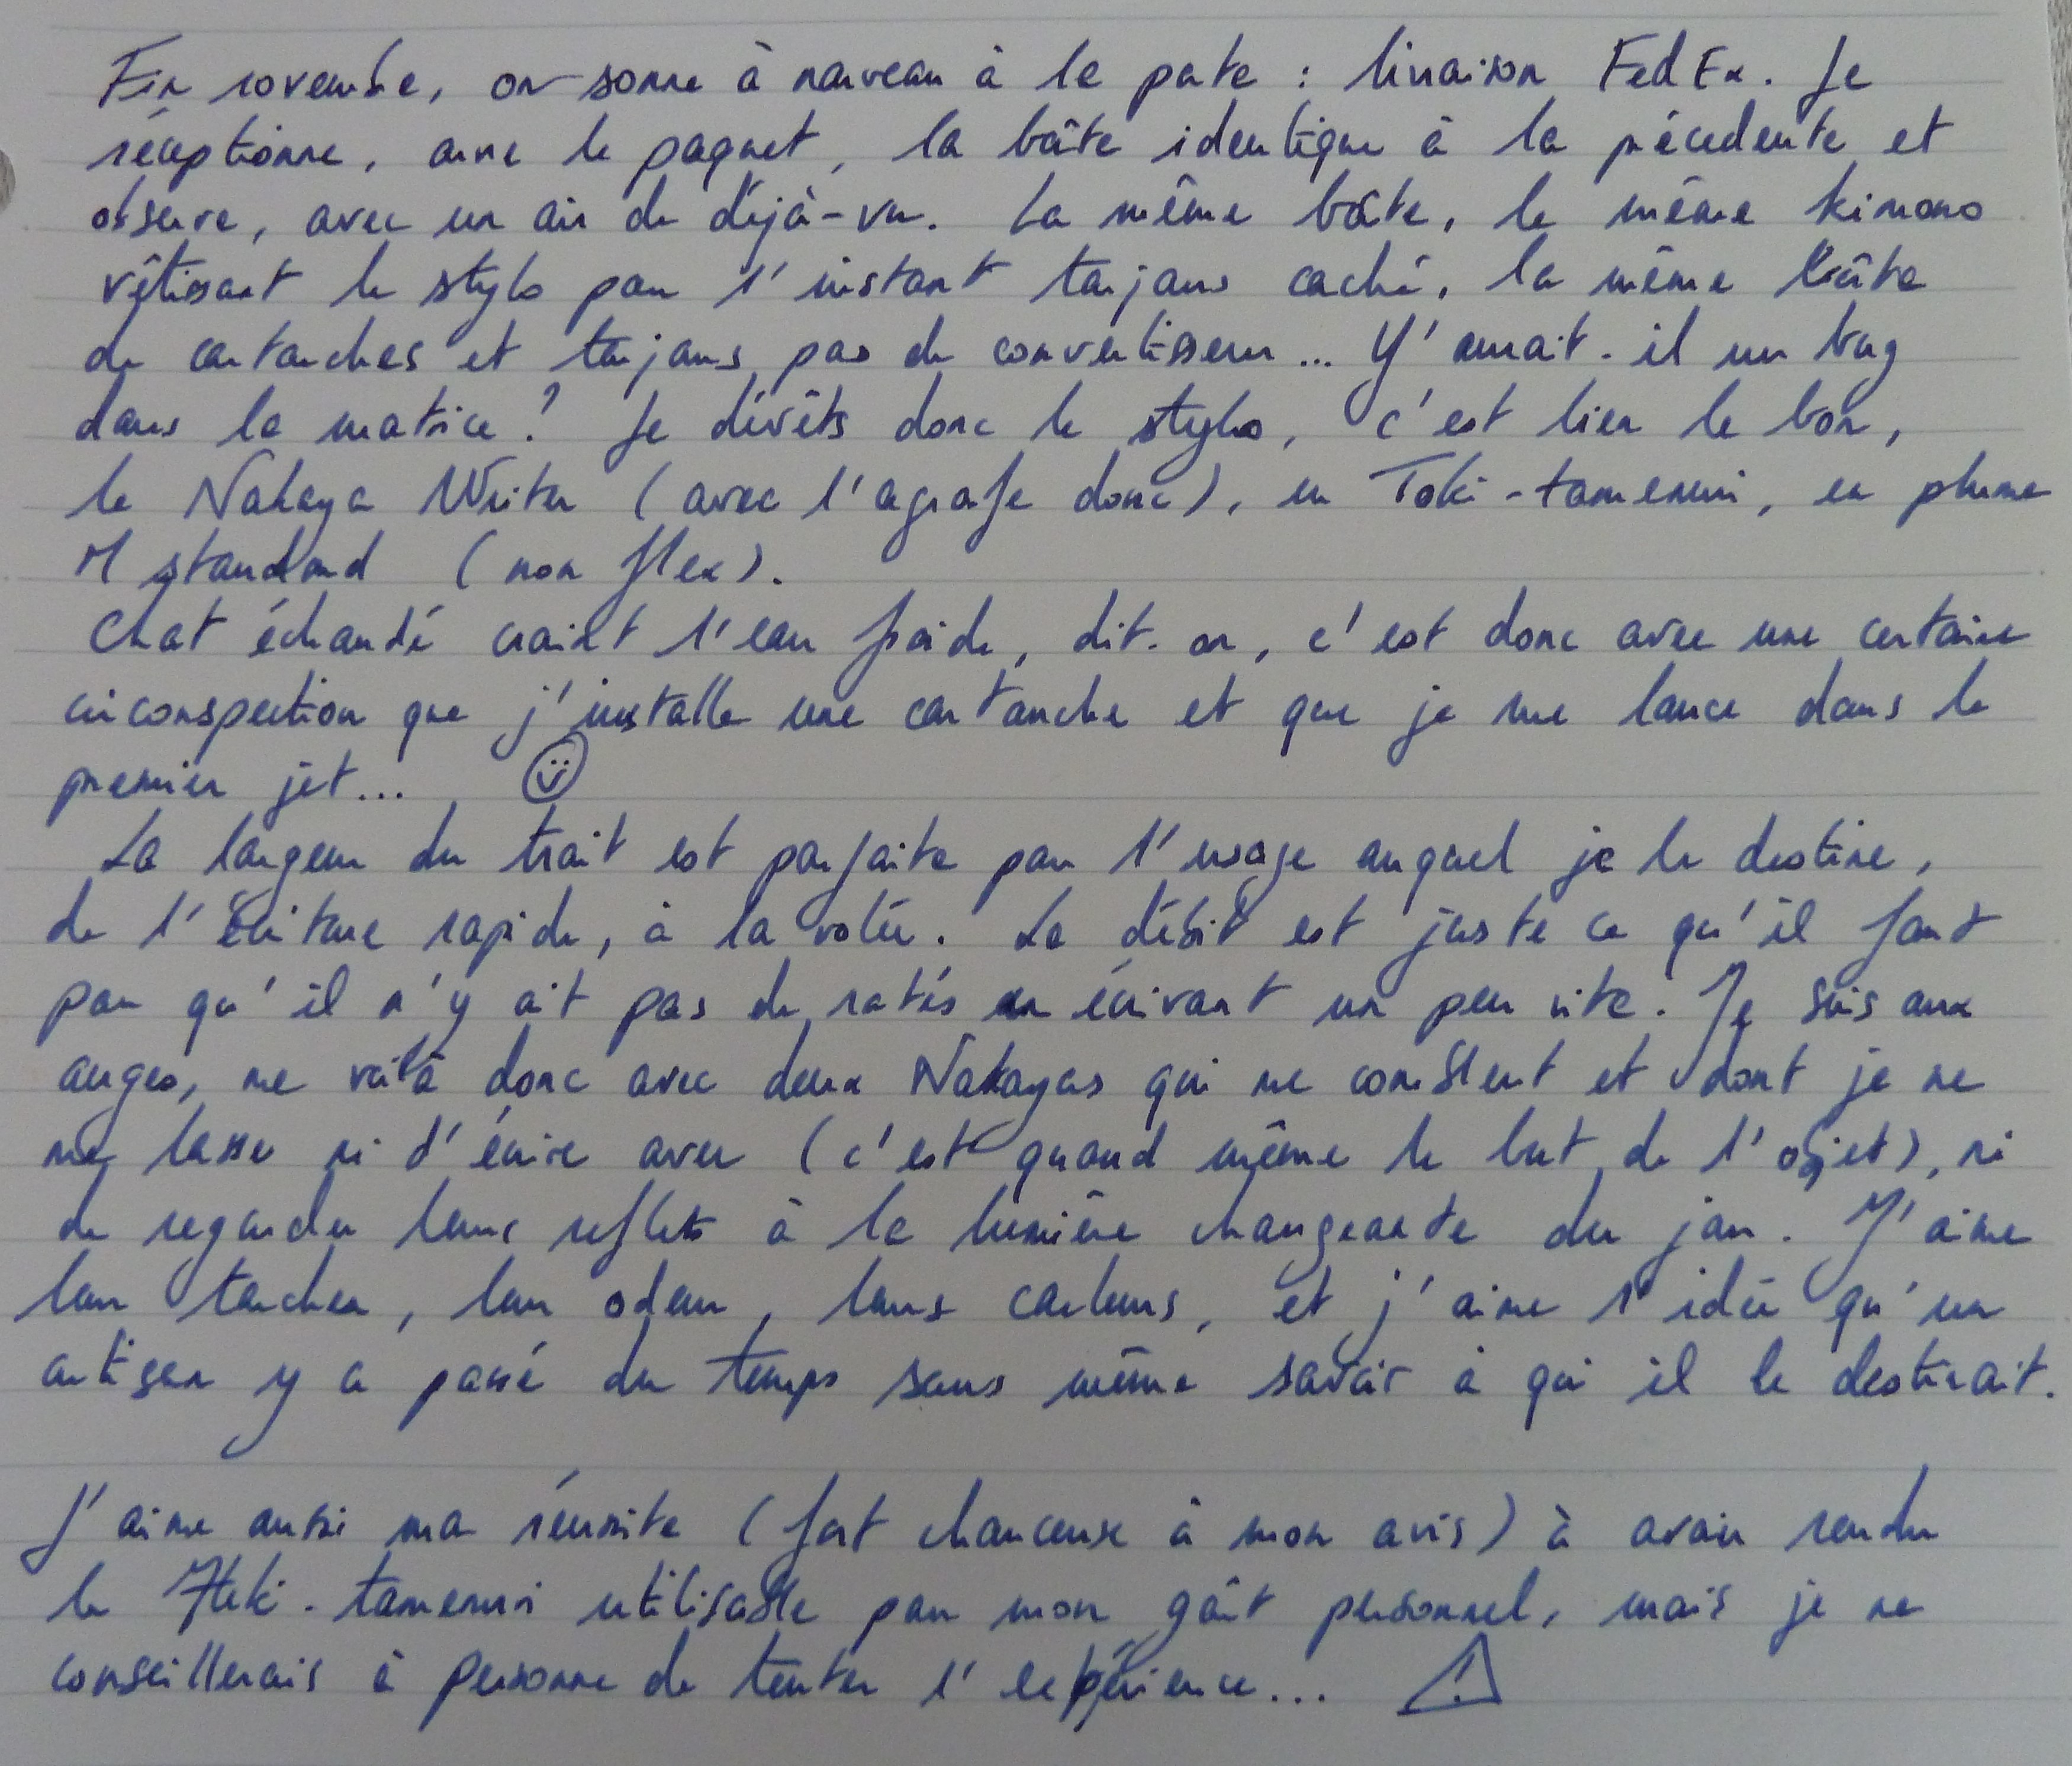 Fin novembre, on sonne à nouveau à la porte : livraison FedEx. Je
réceptionne, ouvre le paquet, la boîte identique à la précedente et
observe, avec un air de déjà-vu. La même boîte, le même kimono
vêtissant le stylo pour l'instant toujours caché, la même boîte
de cartouches et toujours pas de convertisseur... Y'aurait-il un bug
dans la matrice ? Je dévêts donc le stylo, c'est bien le bon,
le Nakaya Writer (avec l'agrafe donc), en Toki-tamenuri, en plume
M standard (non flex).
Chat échaudé craint l'eau froide, dit-on, c'est donc avec une certaine
circonspection que j'installe une cartouche et que je me lance dans le
premier jet... ☺
La largeur du trait est parfaite pour l'usage auquel je le destine,
de l'écriture rapide, à la volée. Le débit est juste ce qu'il faut
pour qu'il n'y ait pas de ratés en écrivant un peu vite. Je suis aux
anges, me voilà donc avec deux Nakayas qui me comblent et dont je ne
me lasse ni d'écrire avec (c'est quand même le but de l'objet), ni
de regarder leurs reflets à la lumière changeante du jour. J'aime
leur toucher, leur odeur, leurs couleurs, et j'aime l'idée qu'un
artisan y a passé du temps sans même savoir à qui il le destinait.
J'aime aussi ma réussite (fort chanceuse à mon avis) à avoir rendu
le Heki-tamenuri utilisable pour mon goût personnel, mais je ne
conseillerais à personne de tenter l'expérience... ⚠